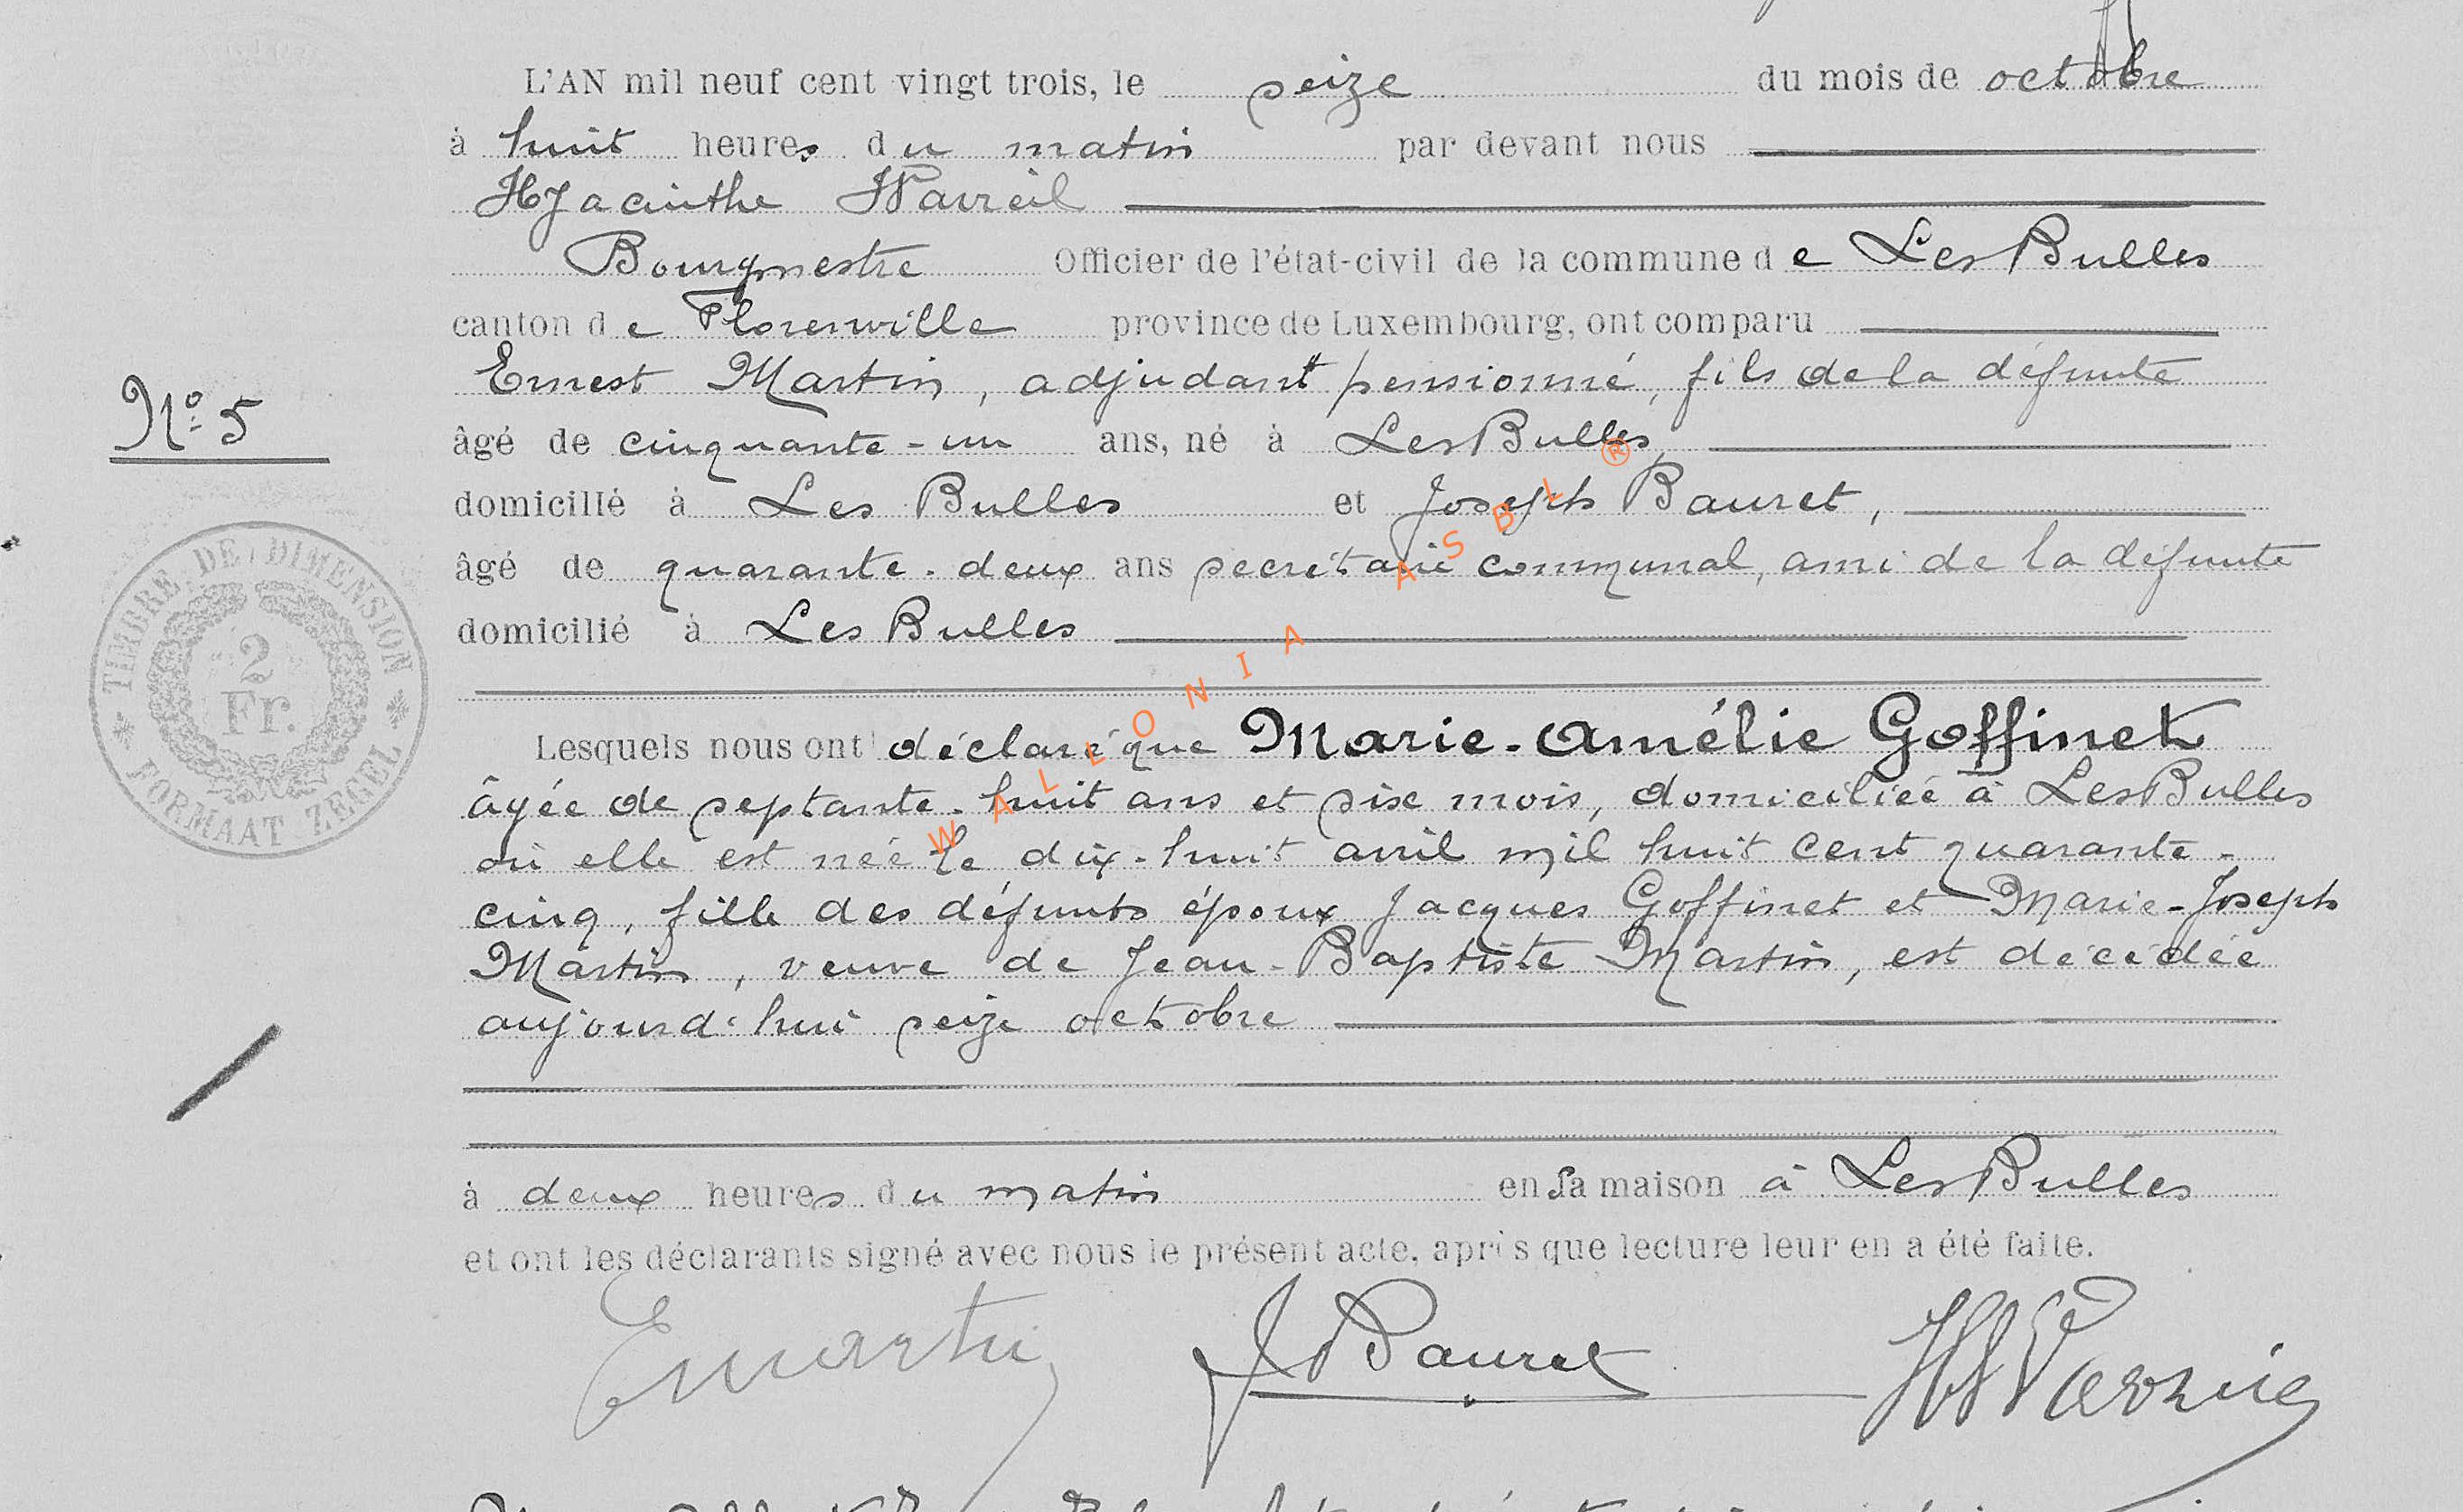 L'AN mil neuf cent vingt trois, le seize du mois de octobre
à huit heures du matin par devant nous
Hyacinthe
Bourgmestre Officier de l'état-civil de la commune de Les Bulles
canton de Florenville province de Luxembourg, ont comparu
Ernest Martin, adjudant pensionné, fils de la défunte
N° 5
âgé de cinquante-un ans, né à Les Bulles,
domicilié à Les Bulles et Joseph Bauret,
âgé de quarante-deux ans secrétaire communal, ami de la défunte
domicilié à Les Bulles
TIMBRE DE DIMENSION
2
Fr.
FORMAAT ZEGEL
WALLONIA ASBL ®
Lesquels nous ont déclaré que Marie-Amélie Goffinet
âgée de septante-huit ans et six mois, domiciliée à Les Bulles
où elle est née le dix-huit avril mil huit cent quarante-
cinq, fille des défunts époux Jacques Goffinet et Marie-Joseph
Martin, veuve de Jean-Baptiste Martin, est décédée
aujourd'hui seize octobre
à deux heures du matin en sa maison à Les Bulles
et ont les déclarants signé avec nous le présent acte, après que lecture leur en a été faite.
EMartin JBauret